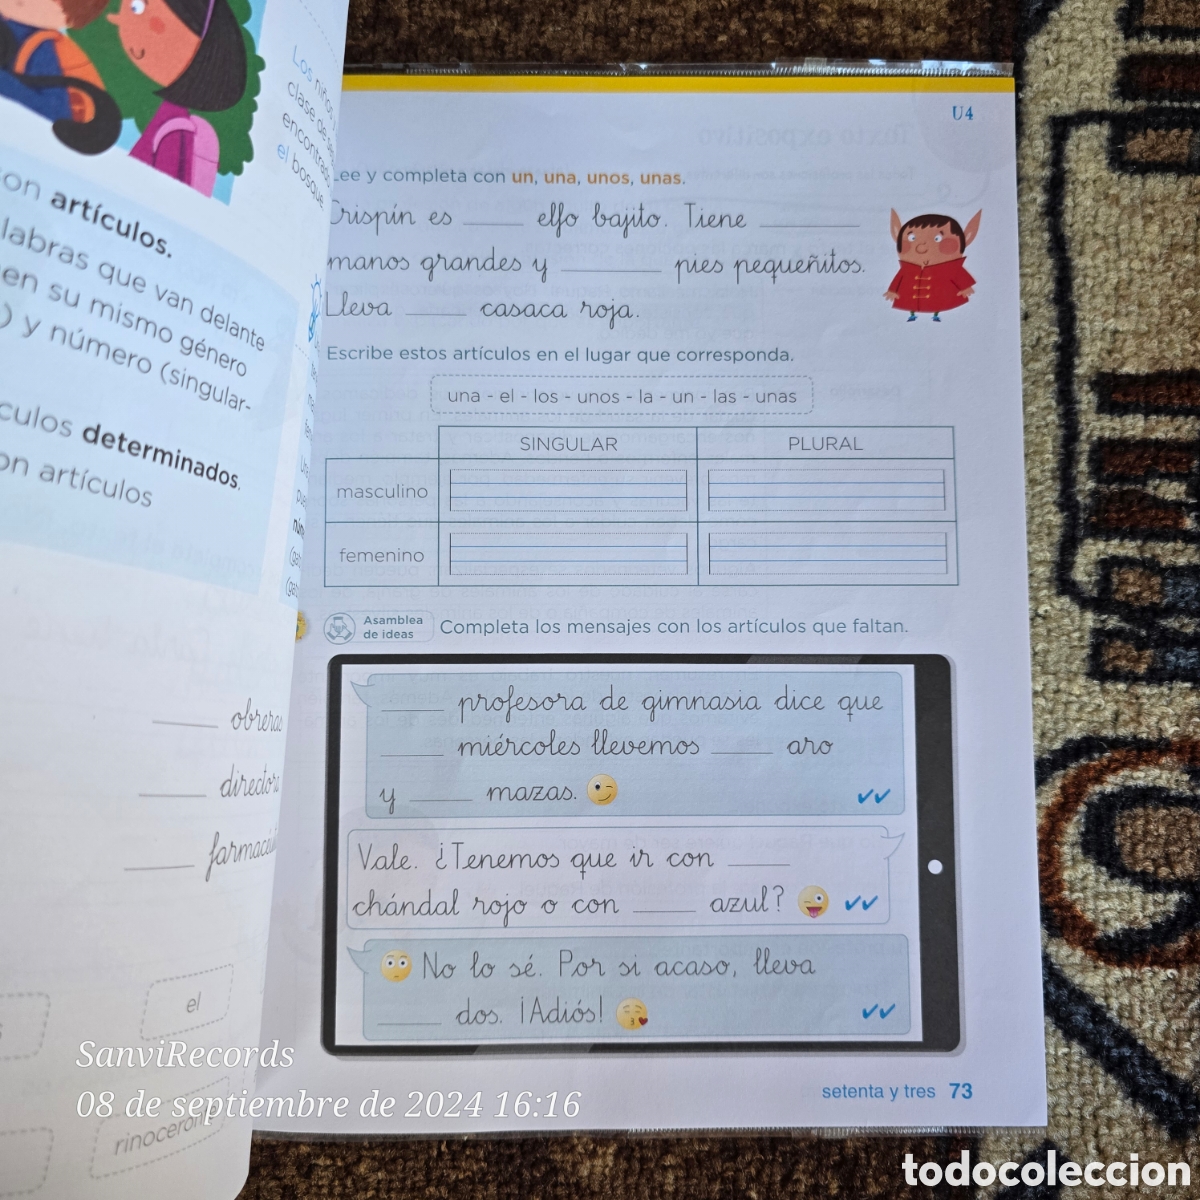 artículos.
labras que van delante
en su mismo género
) y número (singular-
determinados.
artículos
obreras
el
Los niños
clase de
el bosque
U4
Lee y completa con un, una, unos, unas.
Crispín es ____ elfo bajito. Tiene ____
manos grandes y ____ pies pequeñitos.
Lleva ____ casaca roja.
Escribe estos artículos en el lugar que corresponda.
una - el - los - unos - la - un - las - unas
SINGULAR PLURAL
masculino
femenino
Asamblea
de ideas
Completa los mensajes con los artículos que faltan.
____ profesora de gimnasia dice que
____ miércoles llevemos ____ aro
y ____ mazas.
Vale. ¿Tenemos que ir con ____
chándal rojo o con ____ azul?
No lo sé. Por si acaso, lleva
____ dos. ¡Adiós!
setenta y tres 73
SanviRecords
08 de septiembre de 2024 16:16
todocoleccion